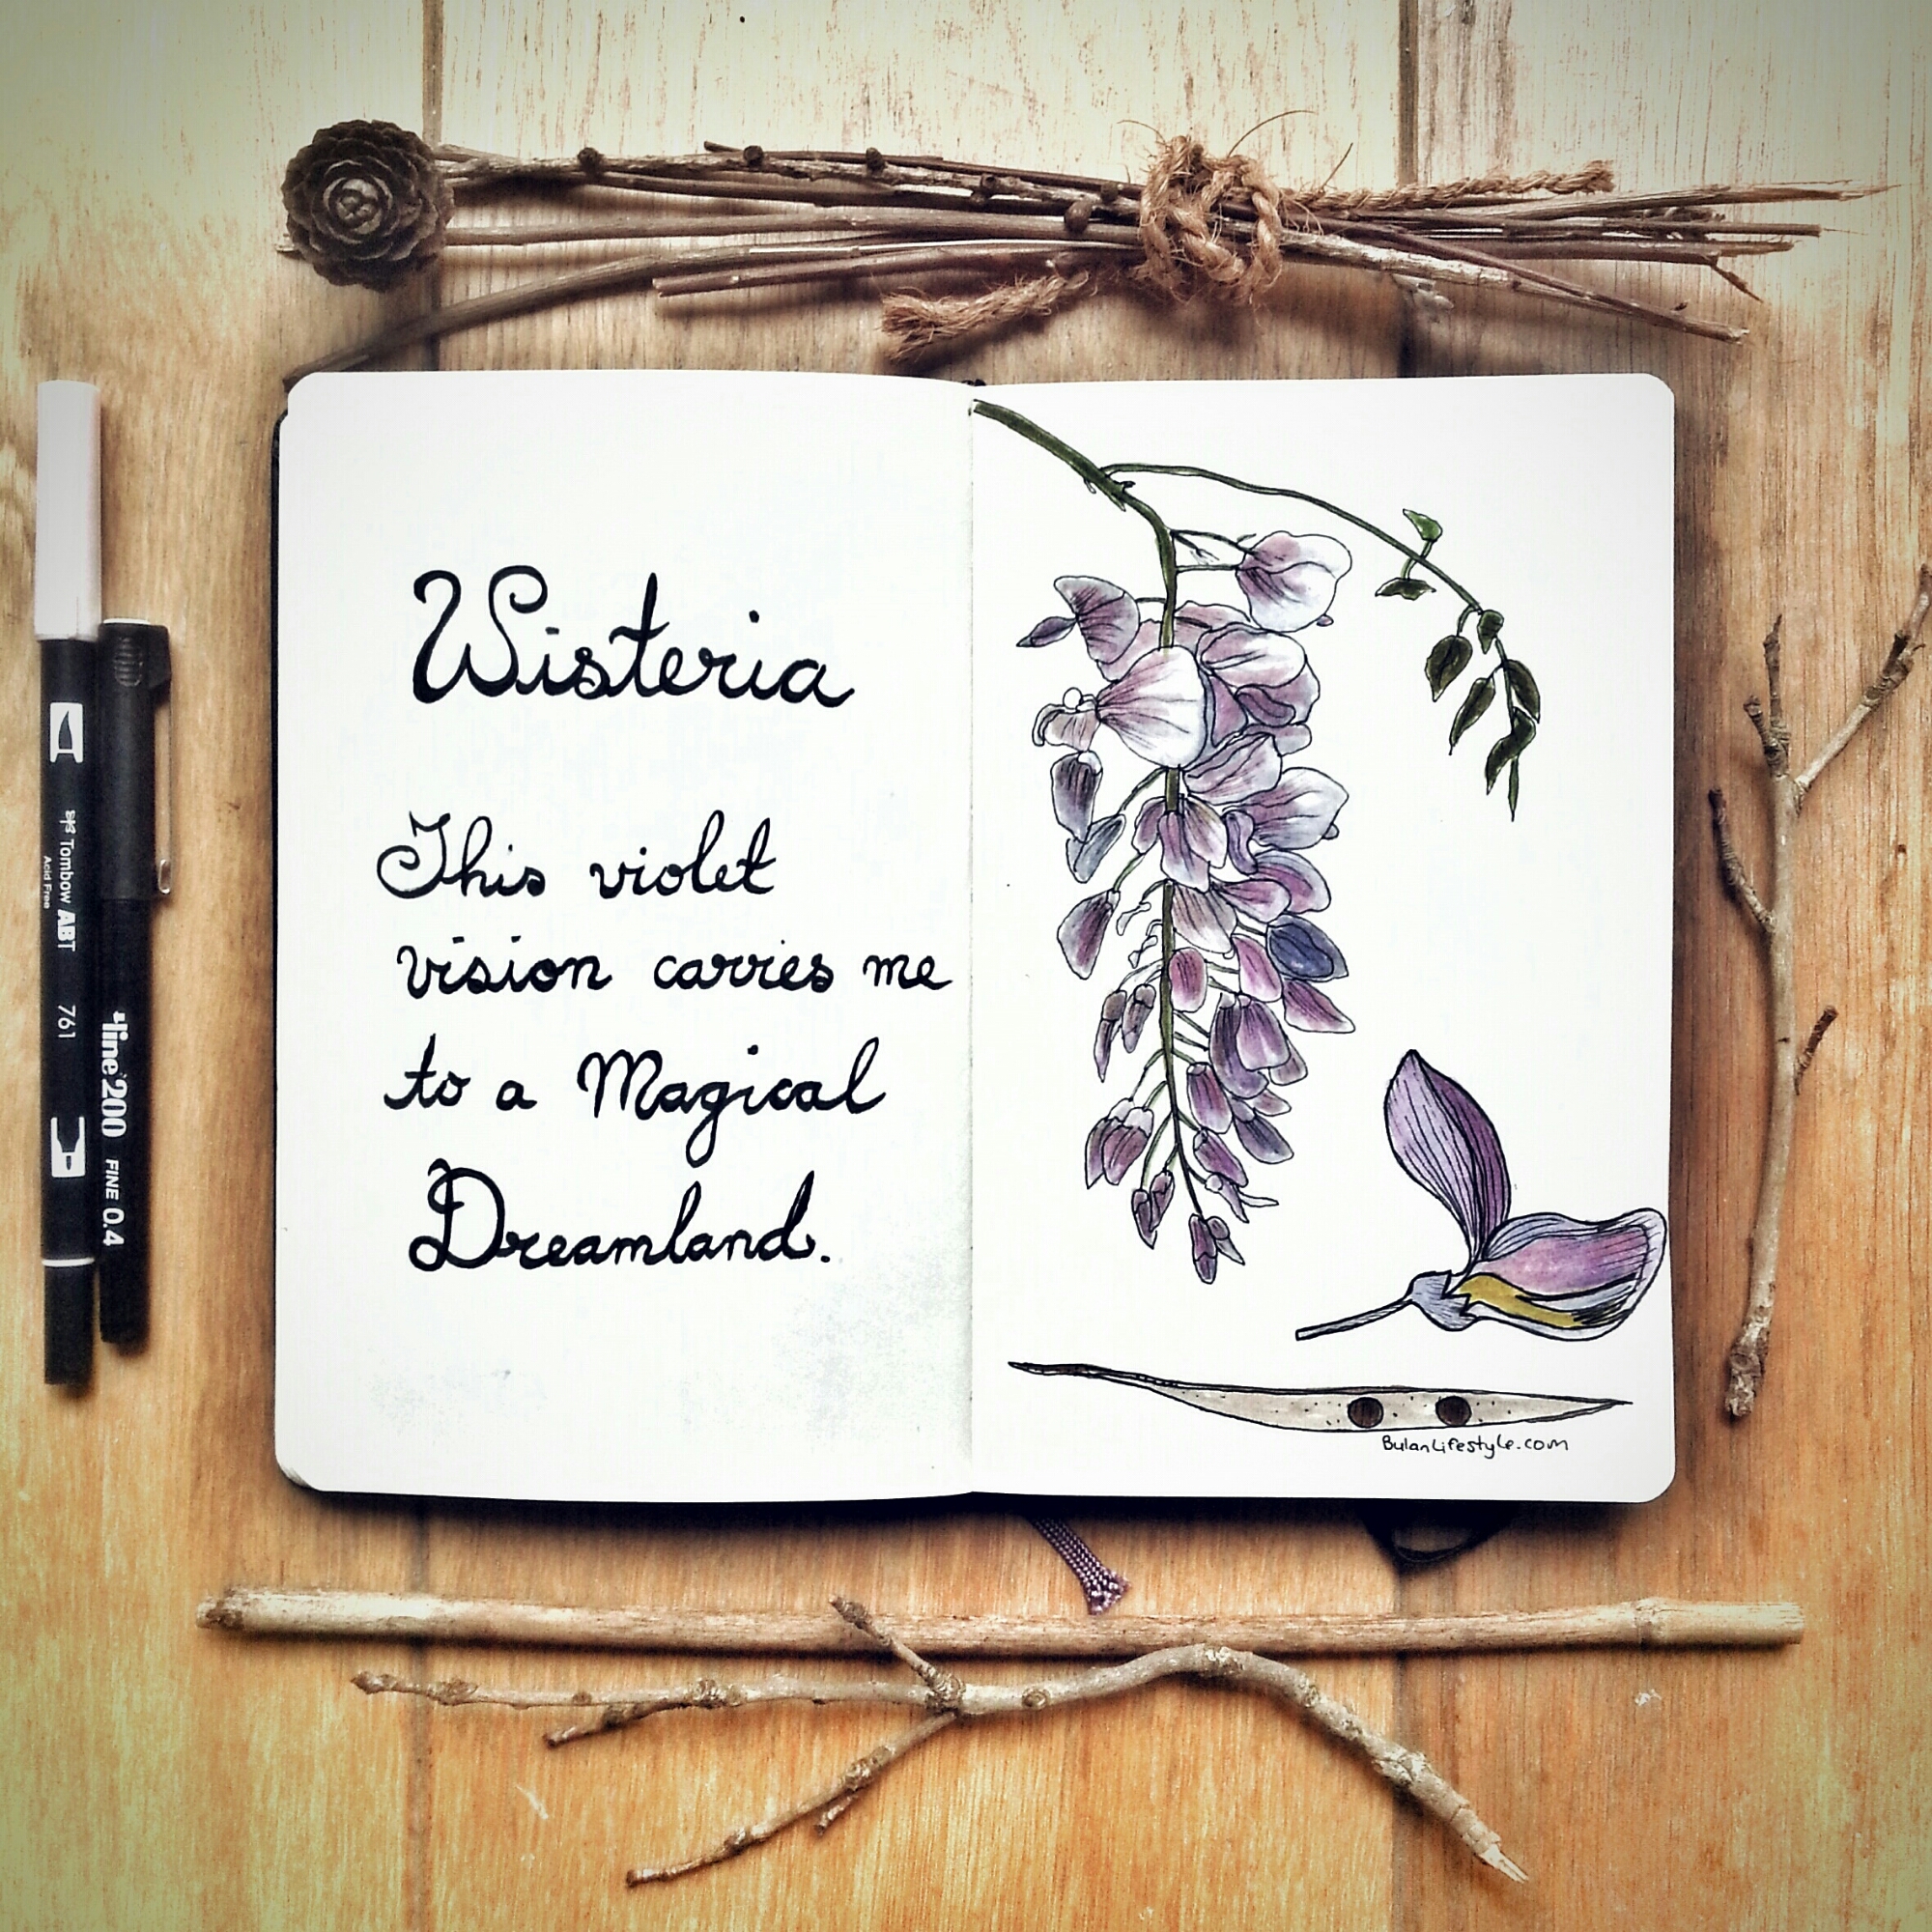 Wisteria
This violet
vision carries me
to a Magical
Dreamland.
BulanLifestyle.com
Tombow ABT
Acid Free
761
line 200 FINE 0.4